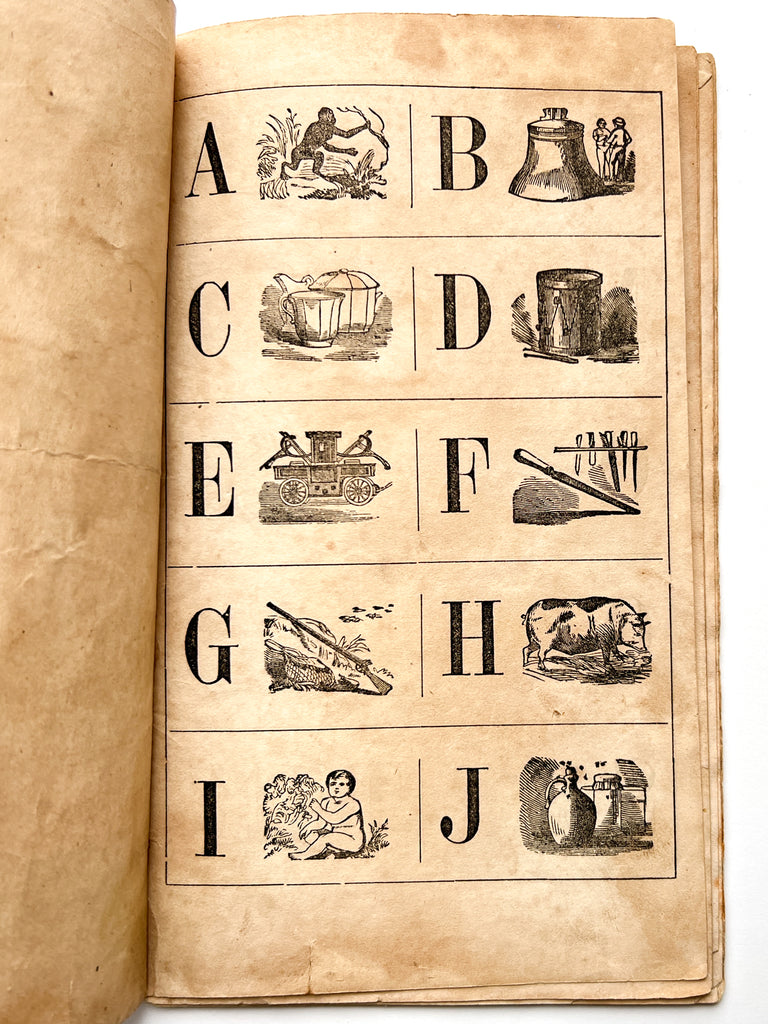 A B
C D
E F
G H
I J